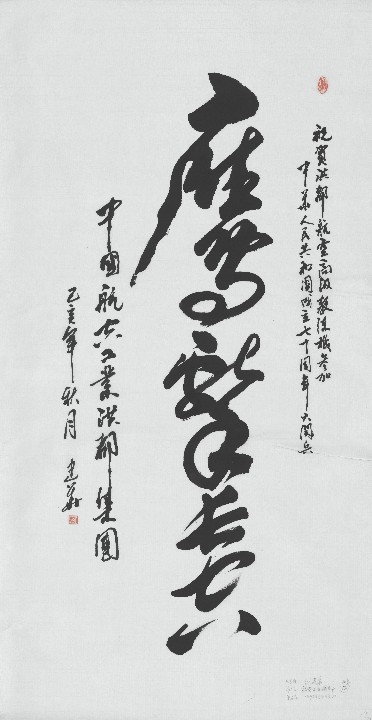 祝賀洪都航空高級教練機参加
中華人民共和國成立七十周年大閲兵
鷹擊長空
中國航空工業洪都集團
己亥年秋月